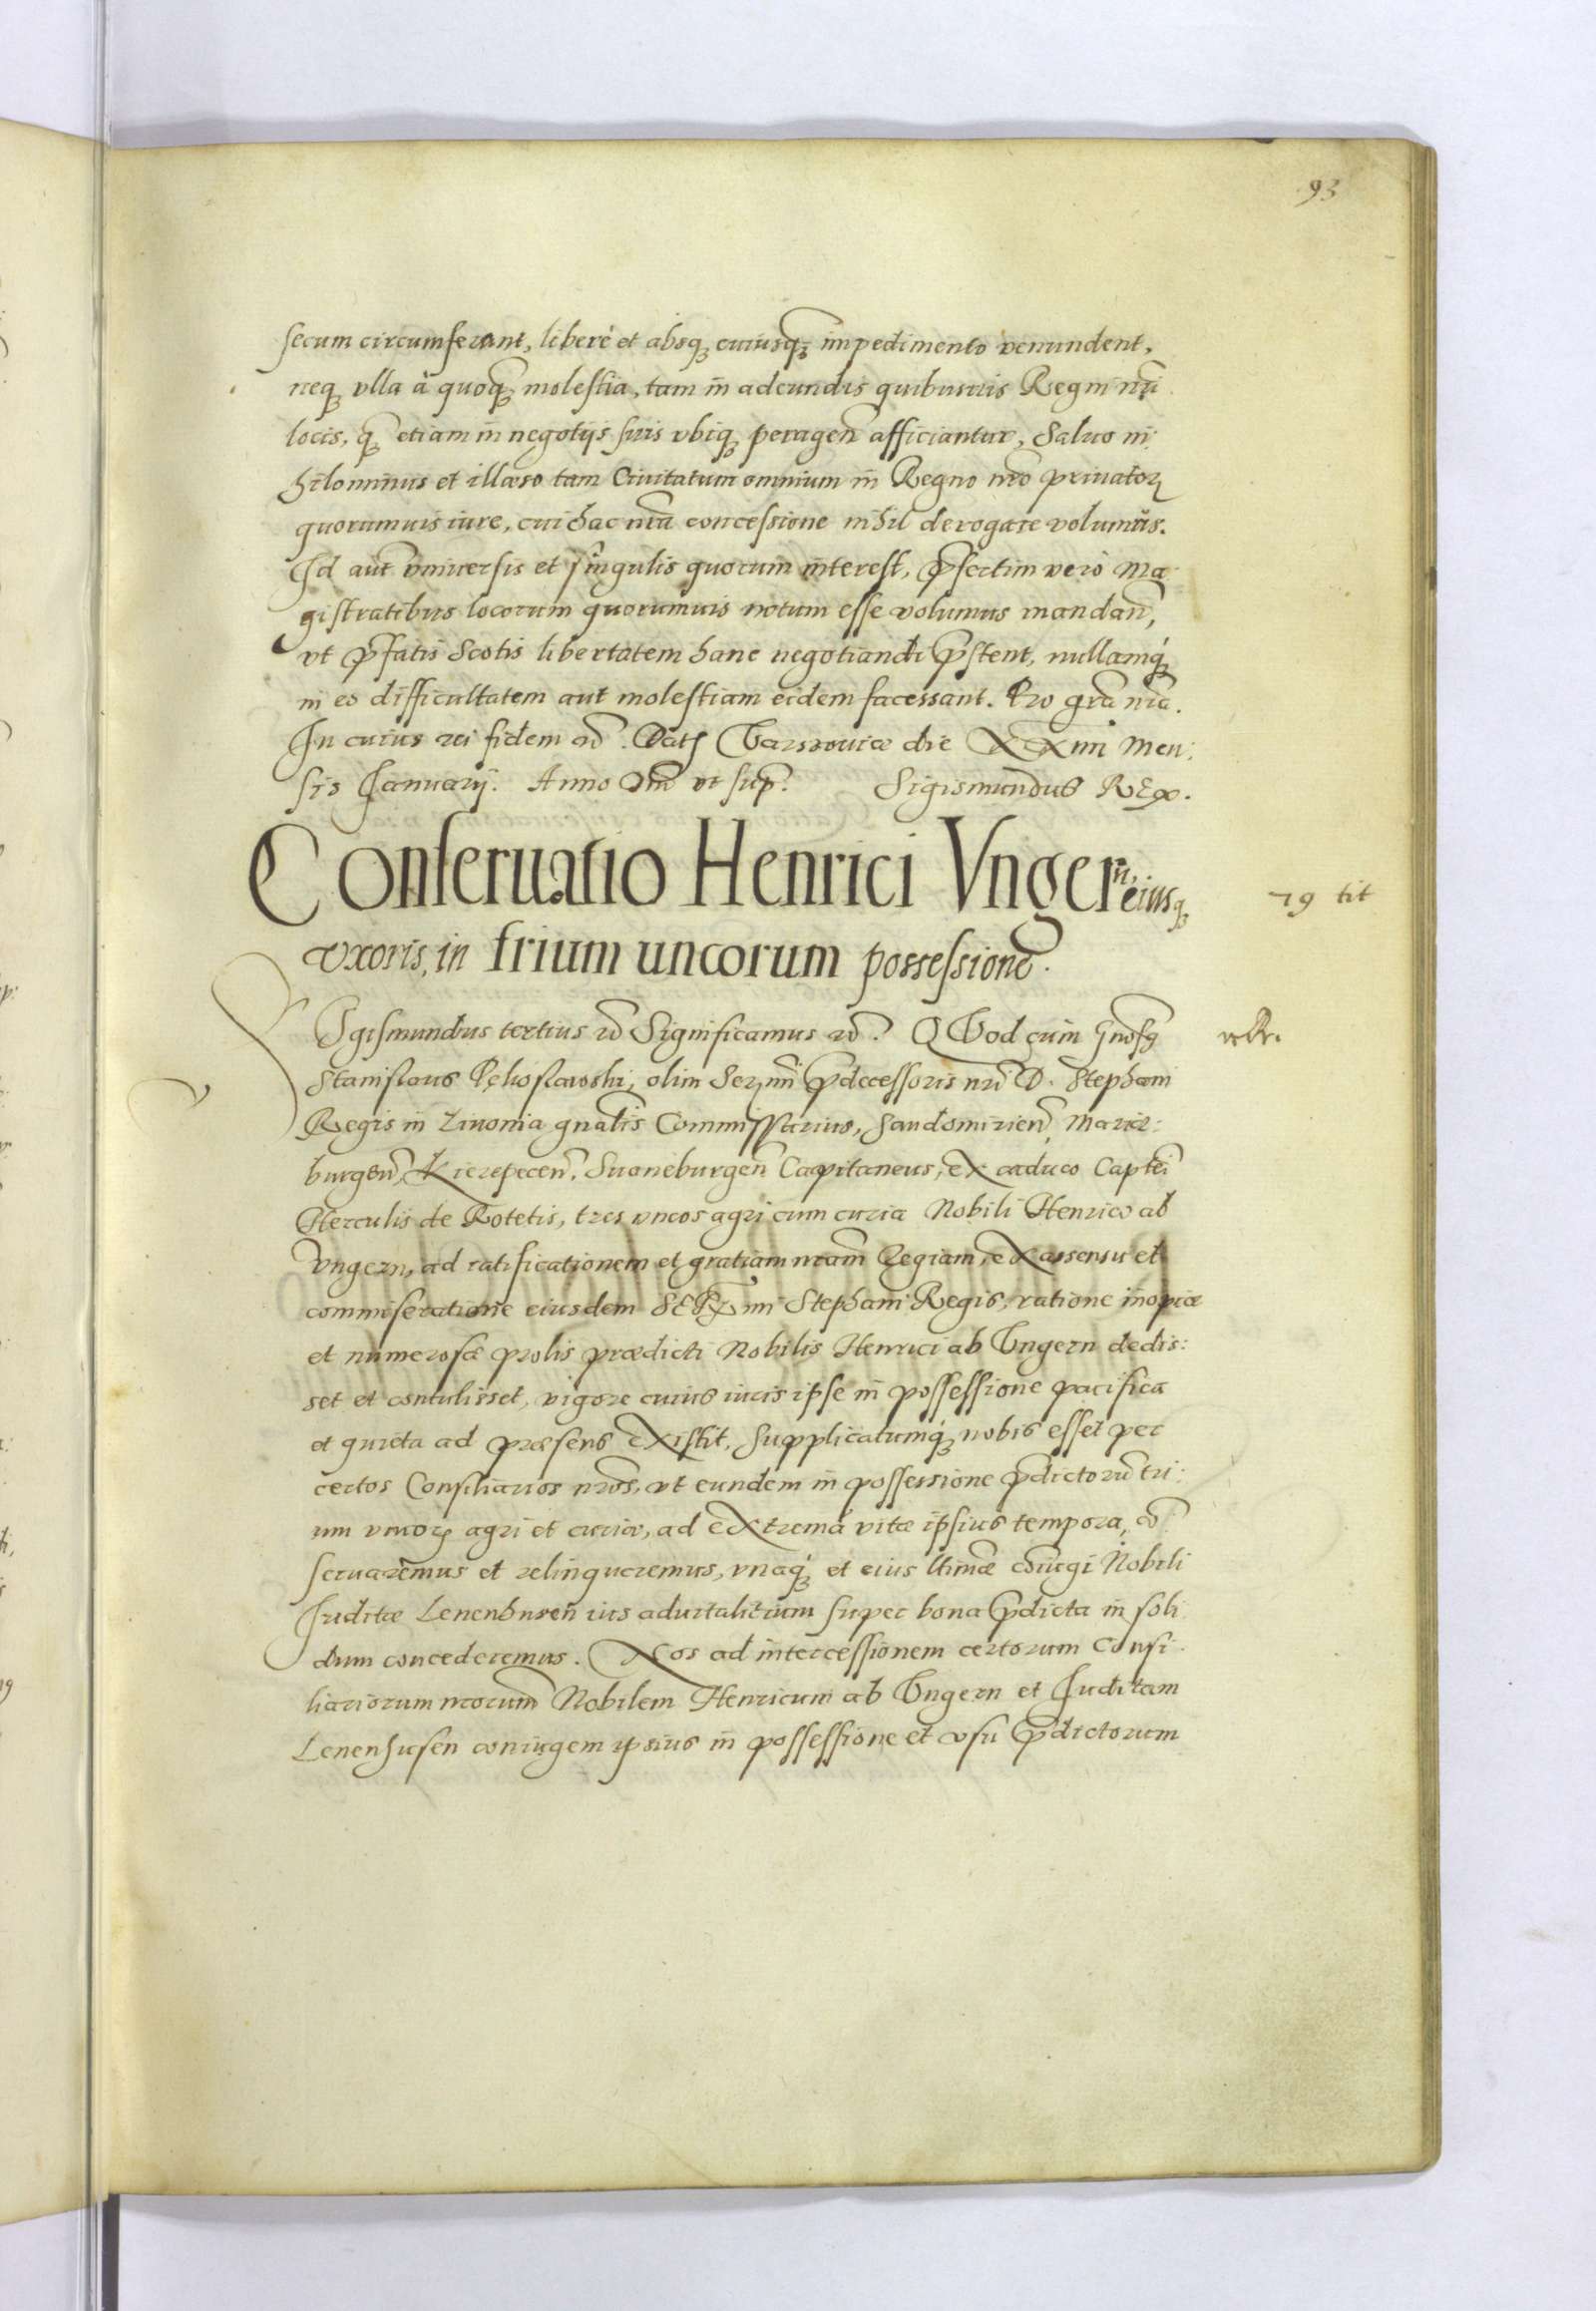 93
secum circumferant, liberè et absq; cuiusq; impedimento venundent,
neq; vlla à quoq; molestia, tam in adeundis quibusuis Regni nri
locis, q; etiam in negotijs suis vbiq; peragen afficiantur, Saluo ni:
hilominus et illæso tam Ciuitatum omnium in Regno nro priuator
quorumuis iure, cui hac nra concessione nihil derogare volumus.
Id aut vniuersis et singulis quorum interest, psertim verò Ma
gistratibus locorum quorumuis notum esse volumus mandan,
vt pfatis Scotis libertatem hanc negotiandi pstent, nullamq;
in eo difficultatem aut molestiam eidem facessant. Pro gra nra.
In cuius rei fidem etc. Dat Varsouiæ die XXIIII Men:
sis Januarij. Anno Dni vt sup. Sigismundus REX.
Conseruatio Henrici Vngern, eiusq;
79 tit
vxoris, in trium uncorum possessione.
SIgismundus tertius etc Significamus etc. QVod cum Gnosus
Stanislaus Pękoslawski, olim Sermi pdecessoris nri D. Stephani
Regis in Liuonia gnalis Commissarius, Sandomirien, Marie:
burgen, Kierepecen, Suoneburgen Capitaneus, ex caduco Captei
Herculis de Rotetis, tres vncos agri cum curia Nobili Henrico ab
Vngern, ad ratificationem et gratiam nram Regiam, ex assensu et
commiseratione eiusdem SERmi Stephani Regis, ratione inopiæ
et numerosæ prolis prædicti Nobilis Henrici ab Vngern dedis:
set et contulisset, vigore cuius iuris ipse in possessione pacifica
et quieta ad præsens existit, Supplicatumq; nobis esset per
certos Consiliarios nros, vt eundem in possessione pdictoru tri:
um vncor agri et curiæ, ad extrema vitæ ipsius tempora, con
seruaremus et relinqueremus, vnaq; et eius ltimæ coniugi Nobili
Juditæ Lenenhusen ius aduitalitium super bona pdicta in soli
dum concederemus. Nos ad intercessionem certorum Consi:
liariorum nrorum Nobilem Henricum ab Vngern et Juditam
Lenenhusen coniugem ipsius in possessione et vsu pdictorum